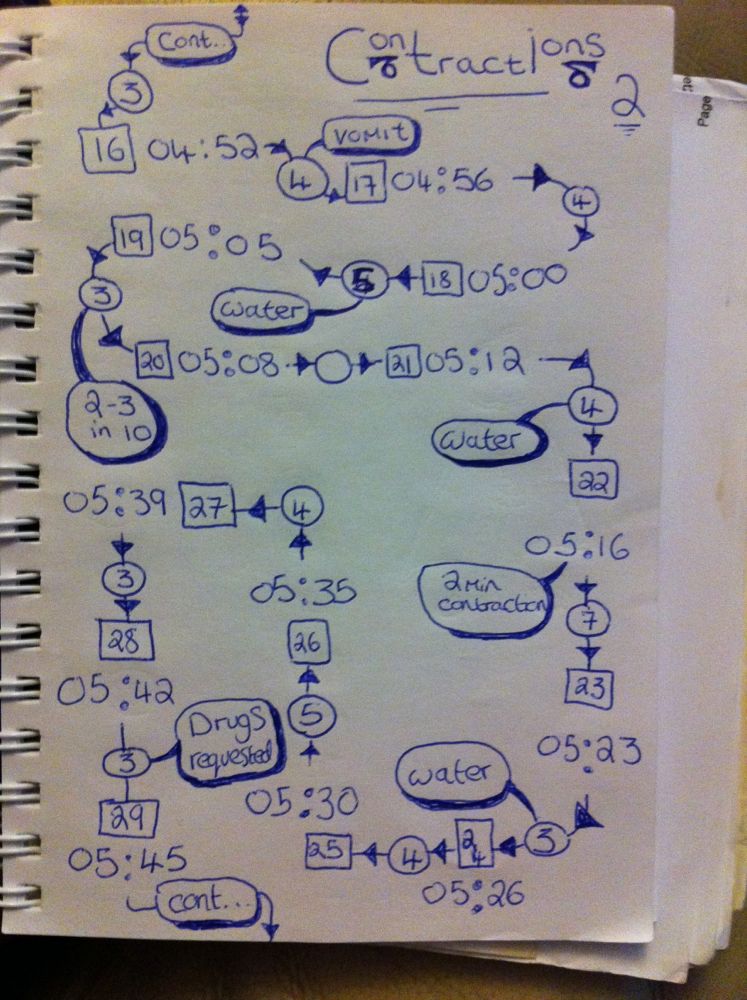 Cont...
Contractions 2
3
16 04:52
VOMIT
4
17 04:56
4
18 05:00
5
water
19 05:05
3
2-3
in 10
20 05:08
21 05:12
4
water
22
05:16
2 Min
contraction
7
23
05:23
3
water
24
05:26
4
25
05:30
5
26
05:35
4
27
05:39
3
28
05:42
3
Drugs
requested
29
05:45
cont...
Page